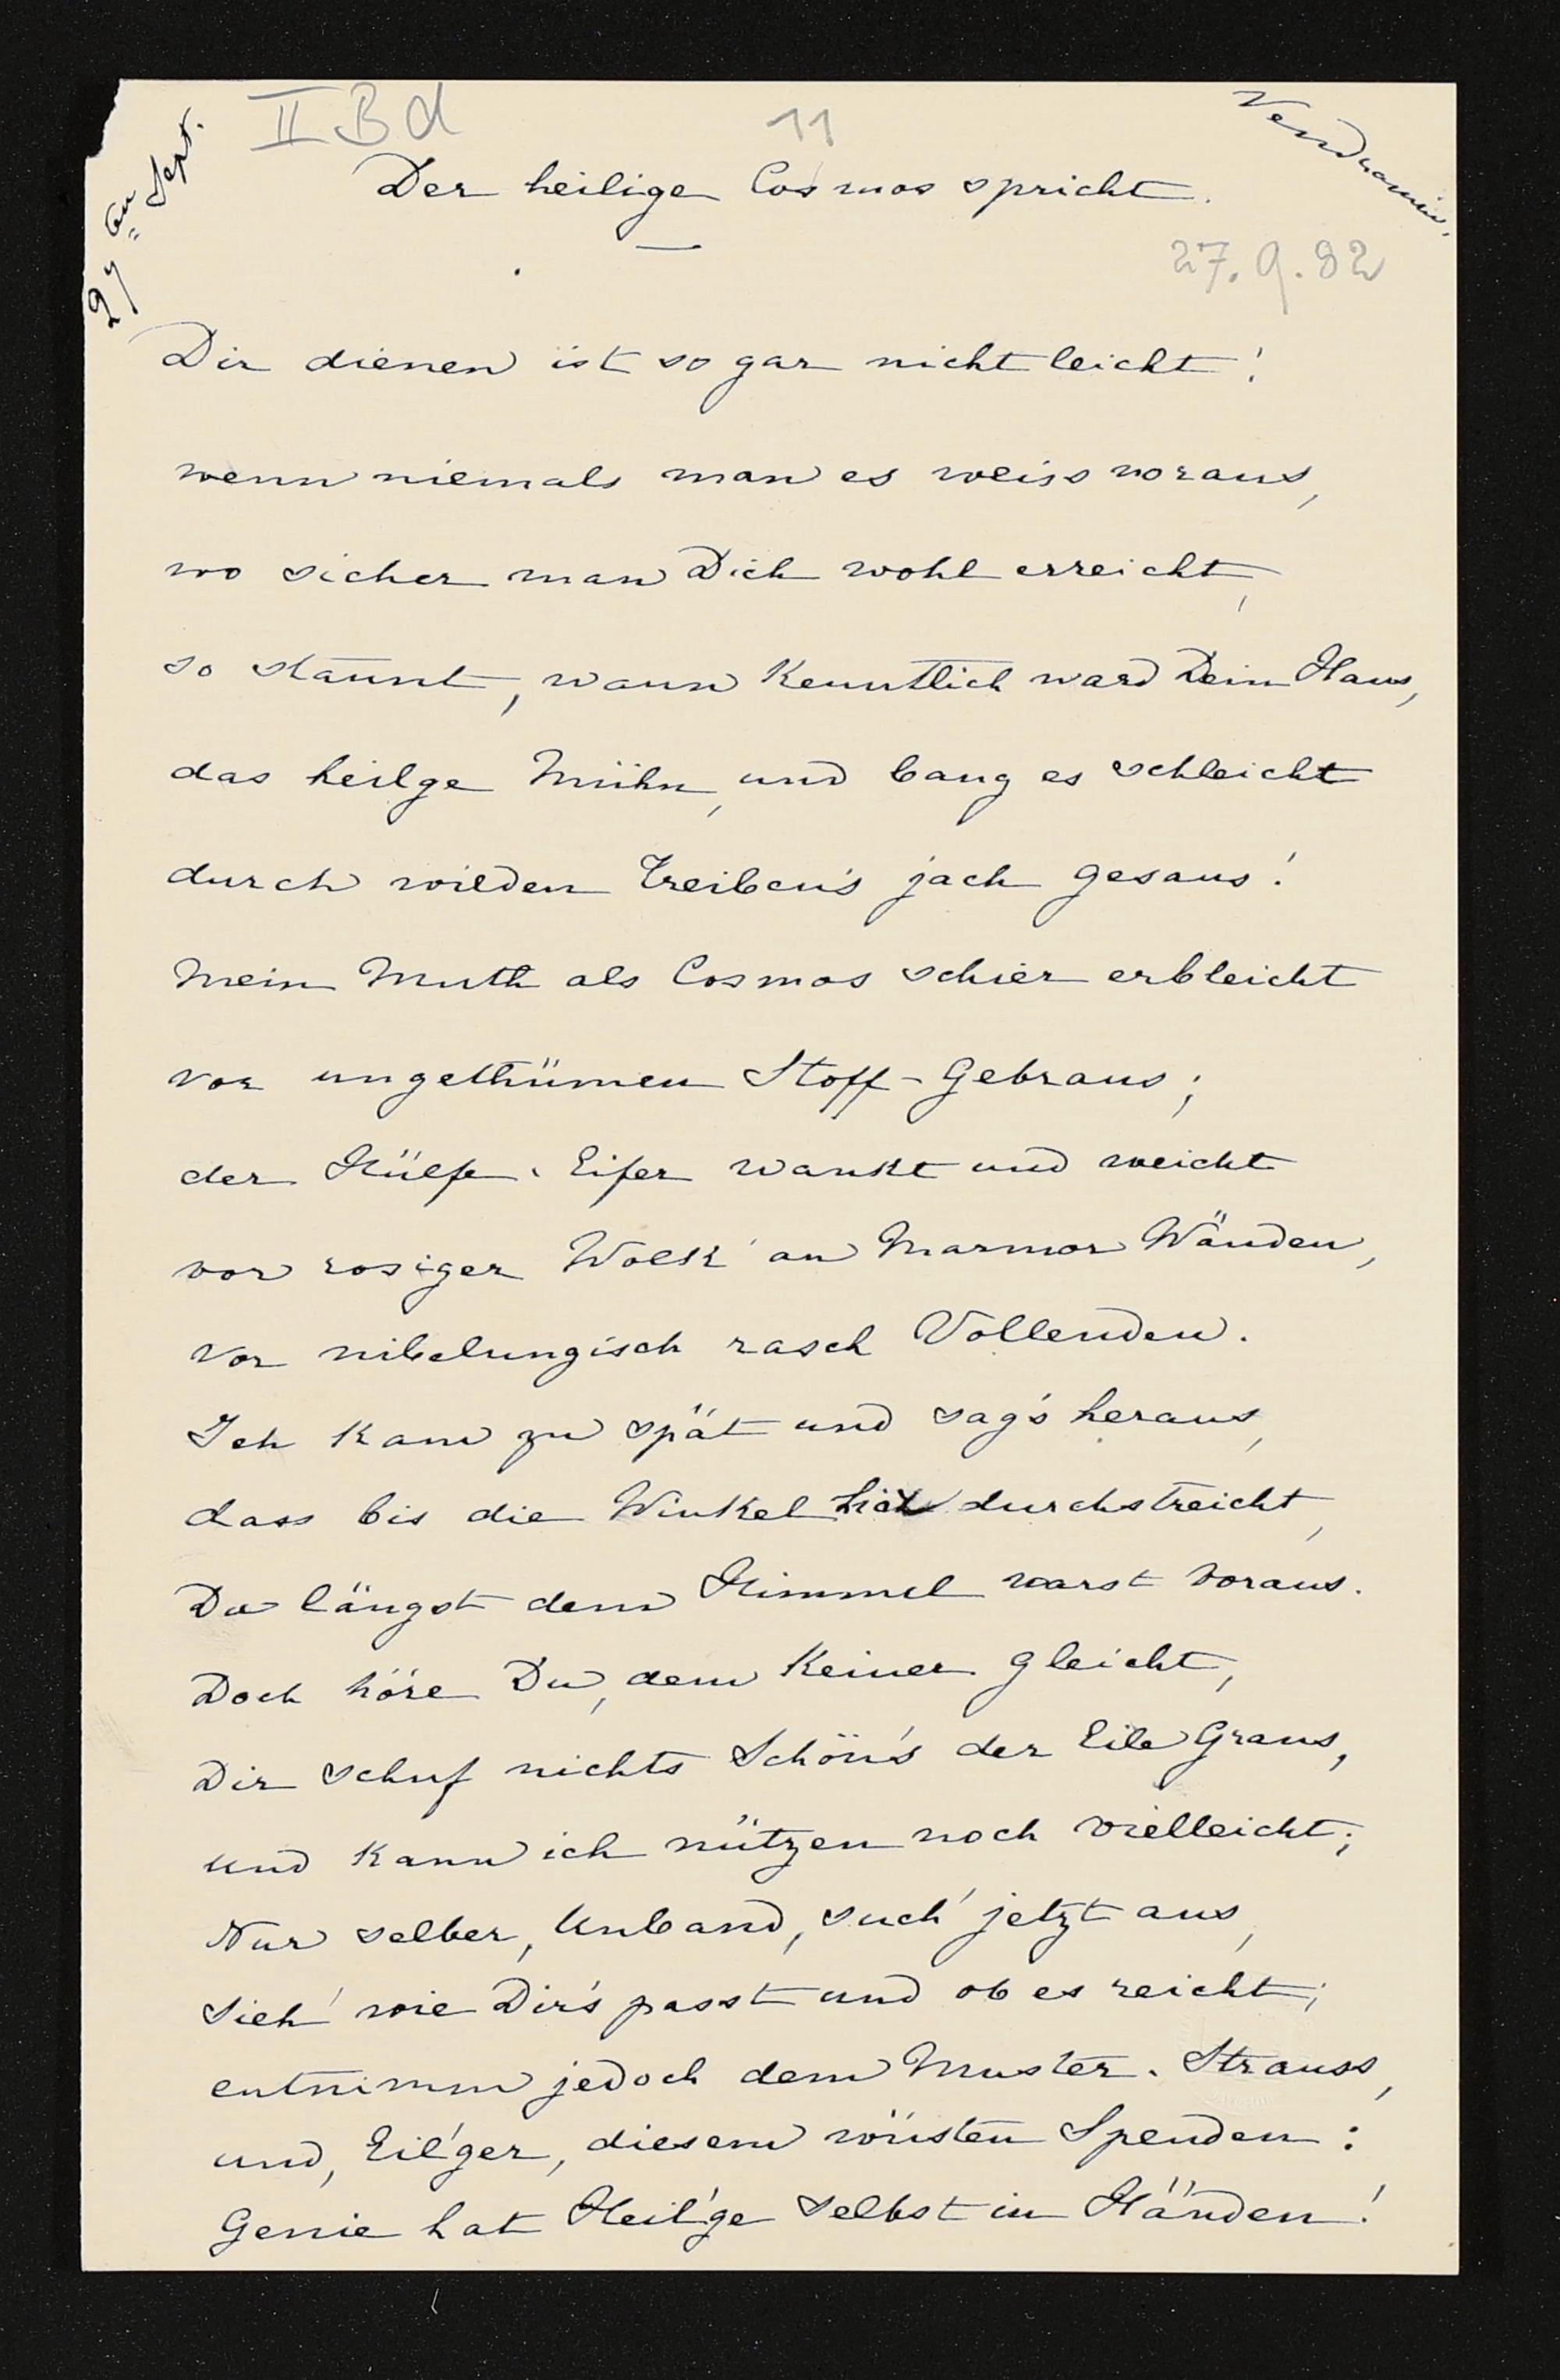 II Bd
11
27 en Sept.
Vendramin.
Der heilige Cosmos spricht.
27.9.82
Dir dienen ist so gar nicht leicht!
wenn niemals man es weiss voraus,
wo sicher man Dich wohl erreicht,
so staunt, wann kenntlich ward Dein Haus,
das heilge Mühn, und bang es schleicht
durch wilden Treiben's jach Gesaus!
Mein Muth als Cosmos schier erbleicht
vor ungethümen Stoff-Gebraus;
der Hülfe-Eifer wankt und weicht
vor rosiger Wolk' an Marmor Wänden,
vor nibelungisch rasch Vollenden.
Ich kam zu spät und sag's heraus,
dass bis die Winkel durchstreicht,
Du längst dem Himmel warst voraus.
Doch höre Du, dem Keiner gleicht,
Dir schuf nichts Schön's der Eile Graus,
und kann ich nützen noch vielleicht;
Nur selber, Unband, such' jetzt aus,
Sieh' wie Dir's passt und ob es reicht;
entnimm jedoch dem Muster-Strauss,
und, Eil'ger, diesem wüsten Spenden:
Genie hat Heil'ge selbst in Händen!